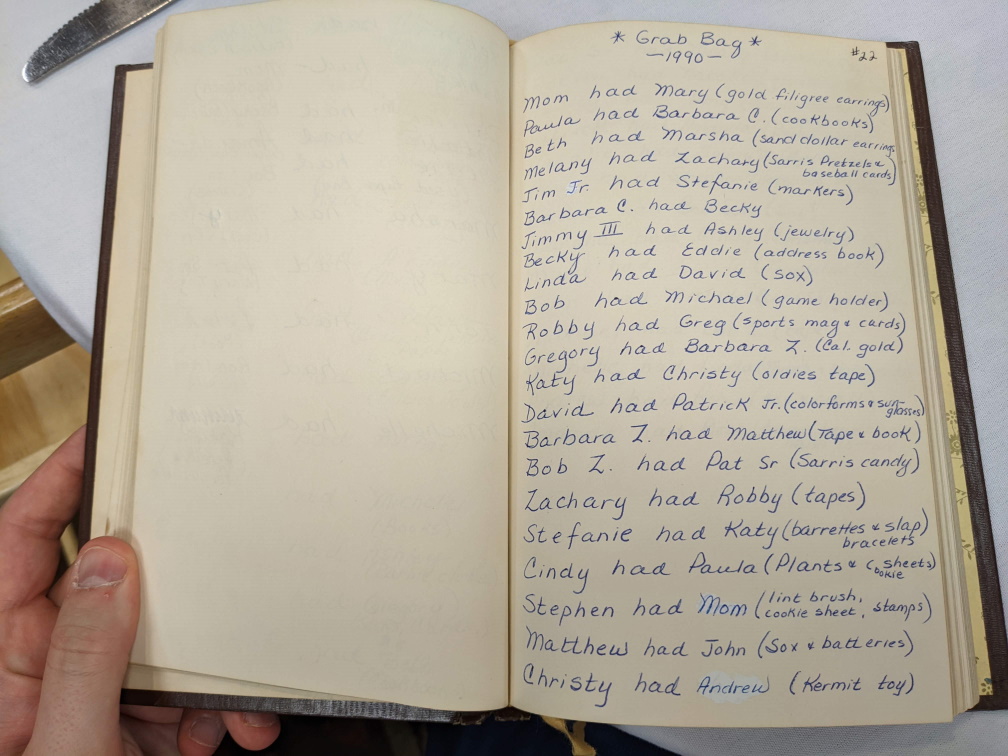 * Grab Bag *
—1990—
#22
Mom had Mary (gold filigree earrings)
Paula had Barbara C. (cookbooks)
Beth had Marsha (sand dollar earrings
Melany had Zachary (Sarris Pretzels &
baseball cards)
Jim Jr. had Stefanie (markers)
Barbara C. had Becky
Jimmy III had Ashley (jewelry)
Becky had Eddie (address book)
Linda had David (sox)
Bob had Michael (game holder)
Robby had Greg (sports mag & cards)
Gregory had Barbara Z. (Cal. gold)
Katy had Christy (oldies tape)
David had Patrick Jr. (colorforms & sun-
glasses)
Barbara Z. had Matthew (Tape & book)
Bob Z. had Pat Sr (Sarris candy)
Zachary had Robby (tapes)
Stefanie had Katy (barrettes & slap)
bracelets
Cindy had Paula (Plants & cookie sheets)
Stephen had Mom (lint brush,
cookie sheet, stamps)
Matthew had John (Sox & batteries)
Christy had Andrew (Kermit toy)